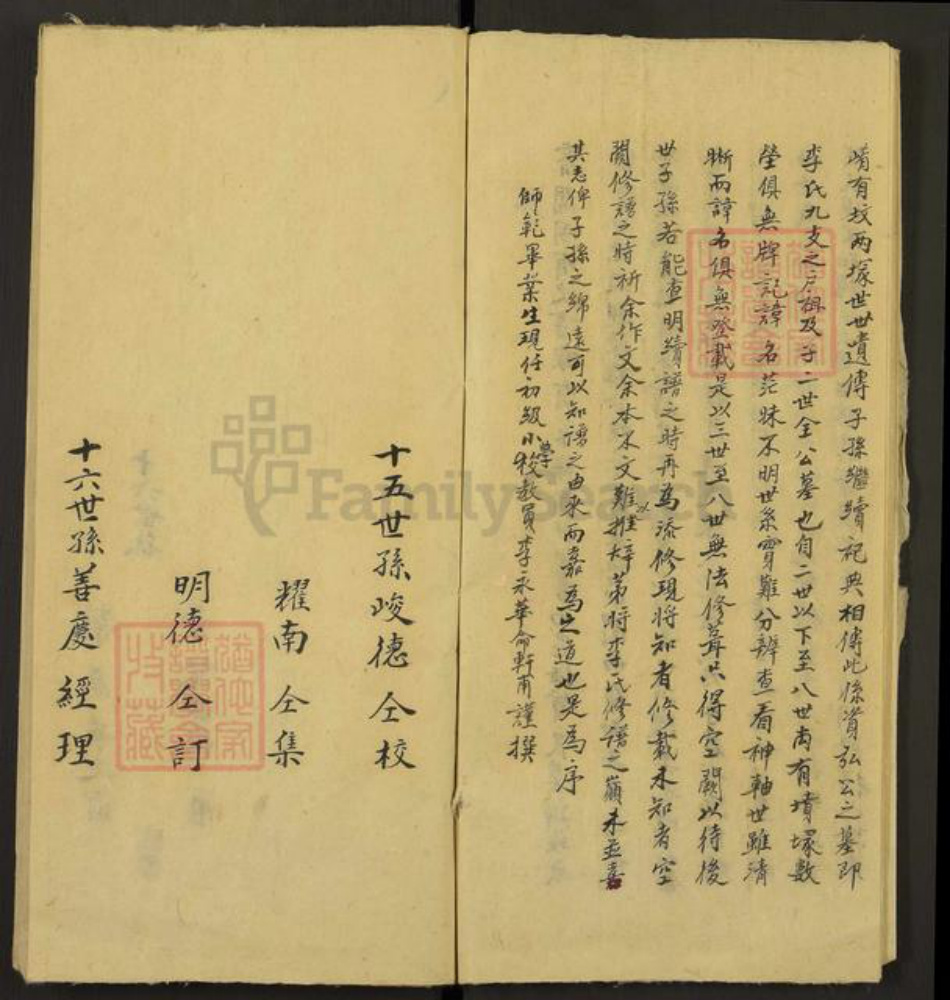 嵴有坟两塚世世遺傳子孫繼續祀典相傳此係資弘公之墓即
李氏九支之戶祖及予二世全公墓也自二世以下至八世尚有墳塚數
塋俱無牌記諱名茫昧不明世系實難分辨查看神軸世雖清
晰而諱名俱無登載是以三世至八世無法修葺只得空闕以待後
世子孫若能查明續譜之時再為添修現將知者修載未知者空
闕修譜之時祈余作文余本不文難以推辞第將李氏修譜之巔末並嘉
其志俾子孫之綿遠可以知譜之由來而嘉為之道也是為序
師範畢業生現任初級小學校教員李永華命軒甫謹撰
十五世孫峻德仝校
耀南仝集
明德仝訂
十六世孫善慶經理
FamilySearch